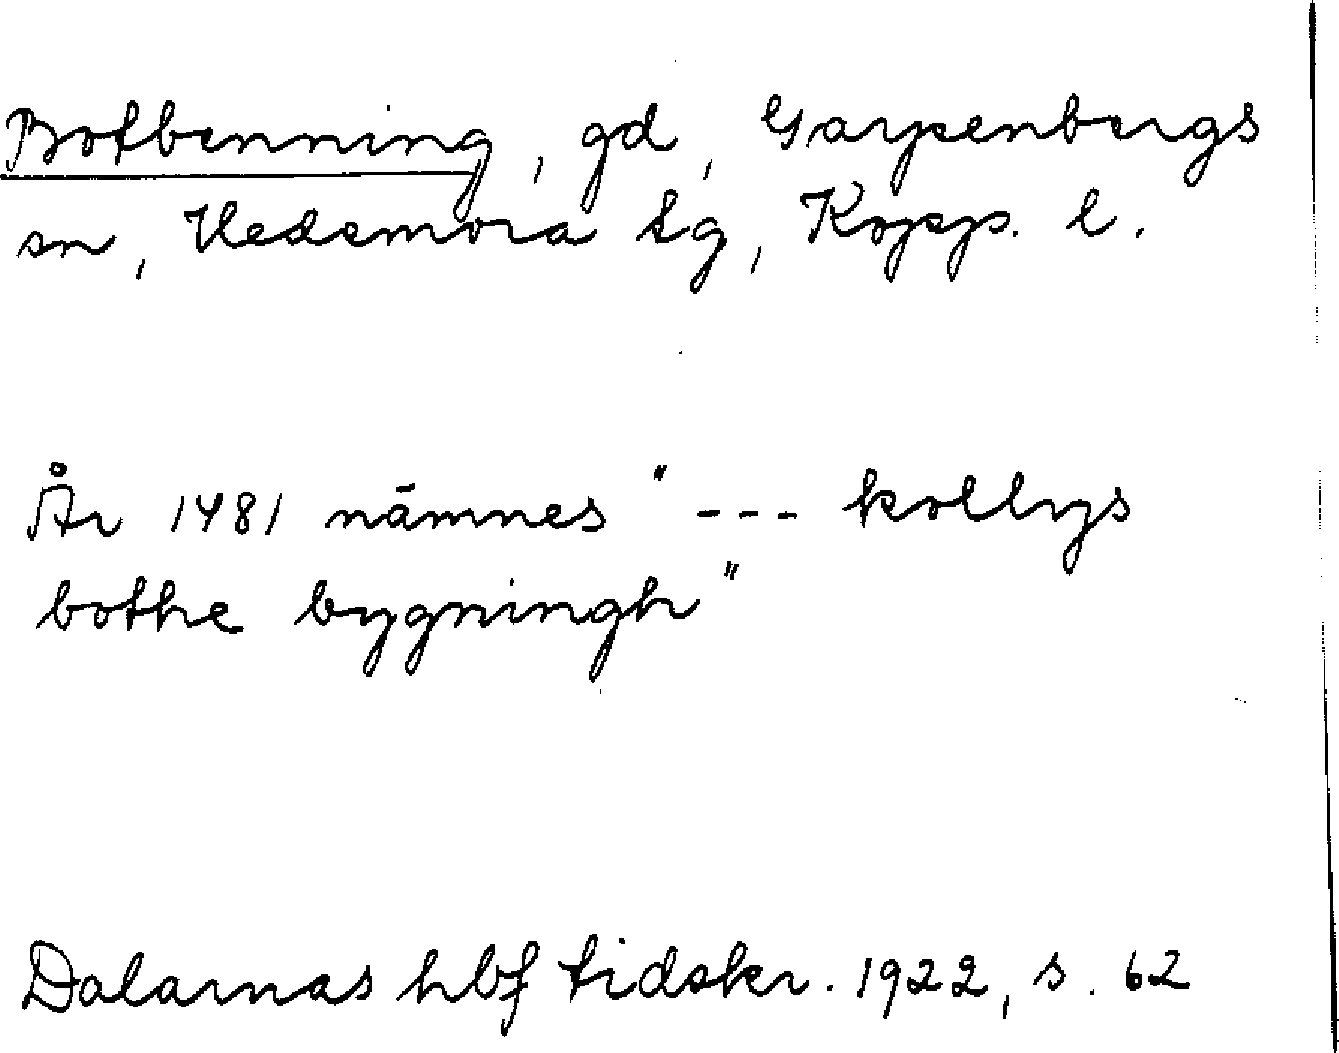 Botbenning, gd, Garpenbergs
sn, Hedemora tg, Kopp. l.
År 1481 nämnes "--- kollrys
bothe bygningh"
Dalarnas hbf tidskr. 1922, s. 62